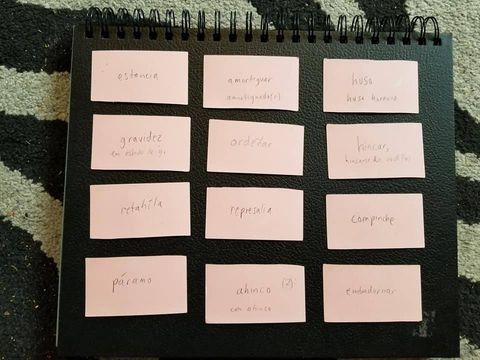 estancia
amortiguar
amortiguado(r)
huso
huso horario
gravidez
en estado de g.
ordeñar
hincar,
hincarse de rodillas
retahíla
represalia
compinche
páramo
ahínco (2)
con ahínco
embadurnar